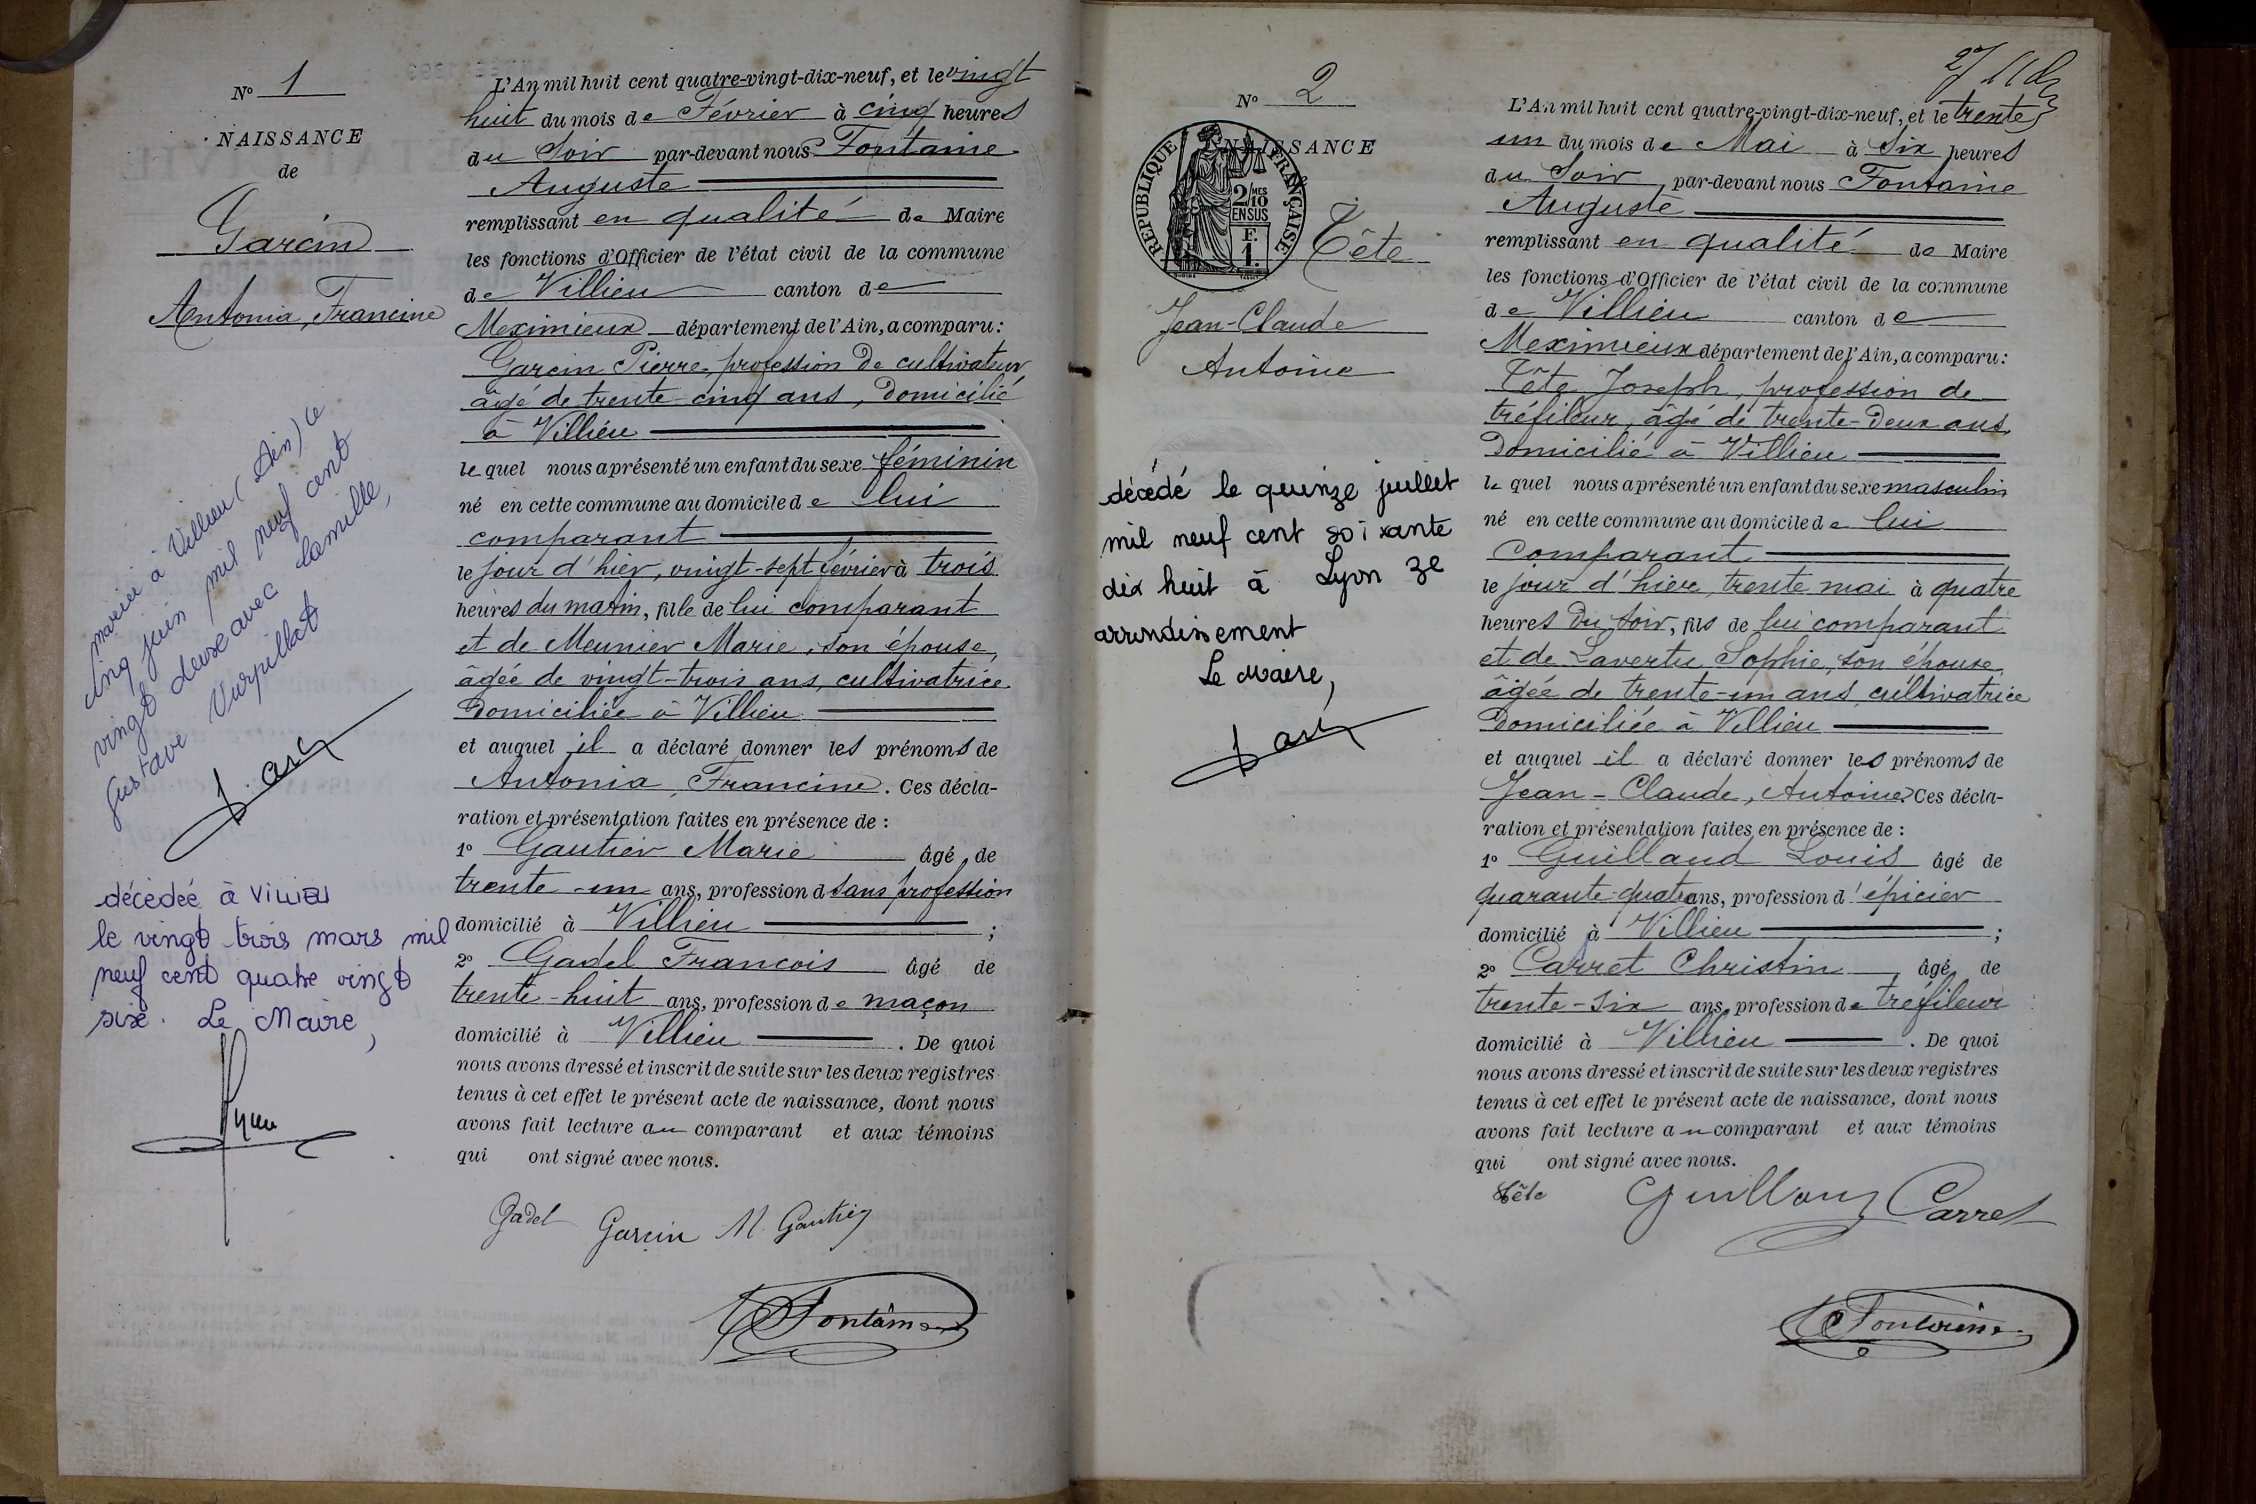 N° 1
NAISSANCE
de
Garcin
Antonia, Francine
marié à Villieu (Ain) le
cinq juin mil neuf cent
vingt deux avec Camille,
Gustave Vurpillat
décédée à VILLIEU
le vingt trois mars mil
neuf cent quatre vingt
six. Le Maire,
L'An mil huit cent quatre-vingt-dix-neuf, et le vingt
huit du mois de Février à cinq heures
du Soir par-devant nous Fontaine
Auguste
remplissant en qualité de Maire
les fonctions d'Officier de l'état civil de la commune
de Villieu canton de
Meximieux département de l'Ain, a comparu:
Garcin Pierre, profession de cultivateur
âgé de trente-cinq ans, domicilié
à Villieu
le quel nous a présenté un enfant du sexe féminin
né en cette commune au domicile de lui
comparant
le jour d'hier, vingt-sept février à trois
heures du matin, fille de lui comparant
et de Meunier Marie, son épouse,
âgée de vingt-trois ans, cultivatrice
domiciliée à Villieu
et auquel il a déclaré donner les prénoms de
Antonia, Francine. Ces décla-
ration et présentation faites en présence de :
1° Gautier Marie âgé de
trente-un ans, profession d sans profession
domicilié à Villieu ;
2° Gadel Francois âgé de
trente-huit ans, profession de maçon
domicilié à Villieu . De quoi
nous avons dressé et inscrit de suite sur les deux registres
tenus à cet effet le présent acte de naissance, dont nous
avons fait lecture au comparant et aux témoins
qui ont signé avec nous.
Gadel Garcin M. Gautier
Fontaine
N° 2
NAISSANCE
RÉPUBLIQUE FRANÇAISE
2/10 MES
EN SUS
F.
1.
Tête
Jean-Claude
Antoine
décédé le quinze juillet
mil neuf cent soixante
dix huit à Lyon 3e
arrondissement
Le Maire,
27
L'An mil huit cent quatre-vingt-dix-neuf, et le trente
un du mois de Mai à six heures
du Soir par-devant nous Fontaine
Auguste
remplissant en qualité de Maire
les fonctions d'Officier de l'état civil de la commune
de Villieu canton de
Meximieux département de l'Ain, a comparu:
Tête Joseph, profession de
tréfileur, âgé de trente-deux ans,
domicilié à Villieu
le quel nous a présenté un enfant du sexe masculin
né en cette commune au domicile de lui
Comparant
le jour d'hier, trente mai à quatre
heures du soir, fils de lui comparant
et de Lavertu Sophie, son épouse,
âgée de trente-un ans, cultivatrice
domiciliée à Villieu
et auquel il a déclaré donner les prénoms de
Jean-Claude, Antoine. Ces décla-
ration et présentation faites en présence de :
1° Guilland Louis âgé de
quarante-quatre ans, profession d'épicier
domicilié à Villieu ;
2° Carret Christin, âgé de
trente-six ans, profession de tréfileur
domicilié à Villieu . De quoi
nous avons dressé et inscrit de suite sur les deux registres
tenus à cet effet le présent acte de naissance, dont nous
avons fait lecture au comparant et aux témoins
qui ont signé avec nous.
Tête Guilland Carret
Fontaine